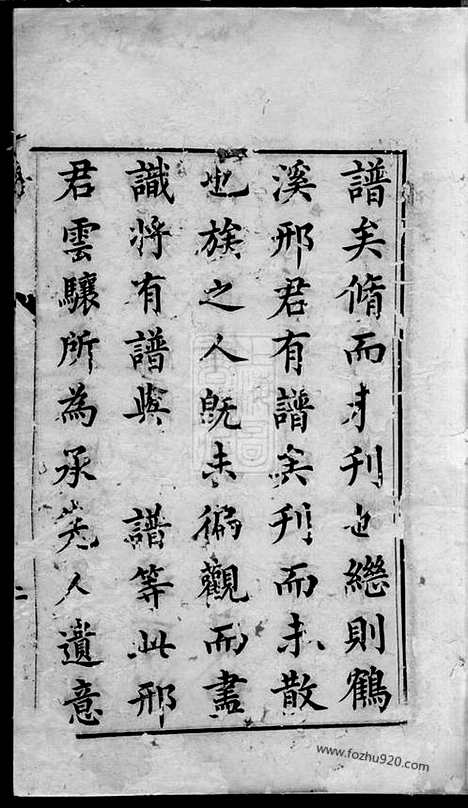 譜矣脩而未刊也繼則鶴
溪邢君有譜矣刊而未散
也族之人既未徧觀而盡
識將有譜與 譜等此邢
君雲驤所為承先人遺意
www.fozhu920.com